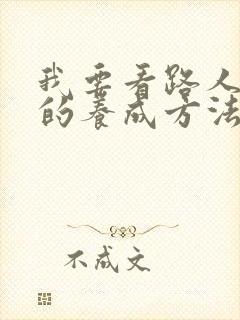 我要看路人
的养成方法
不成文